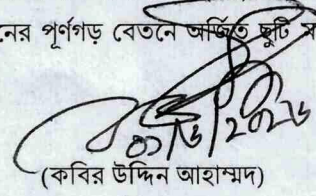 নের পূর্ণগড় বেতনে অর্জিত ছুটি ম
(কবির উদ্দিন আহাম্মদ)